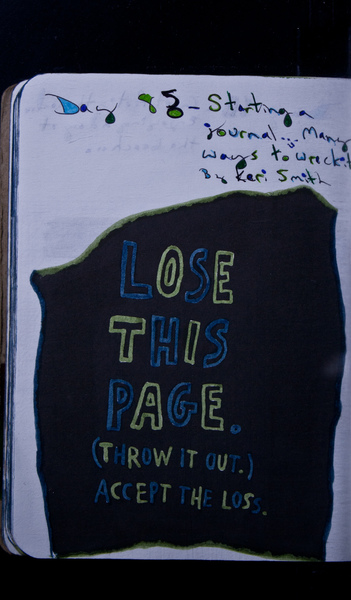 Day 83 - Starting a
journal... Many
ways to wreck it
By Keri Smith
LOSE
THIS
PAGE.
(THROW IT OUT.)
ACCEPT THE LOSS.